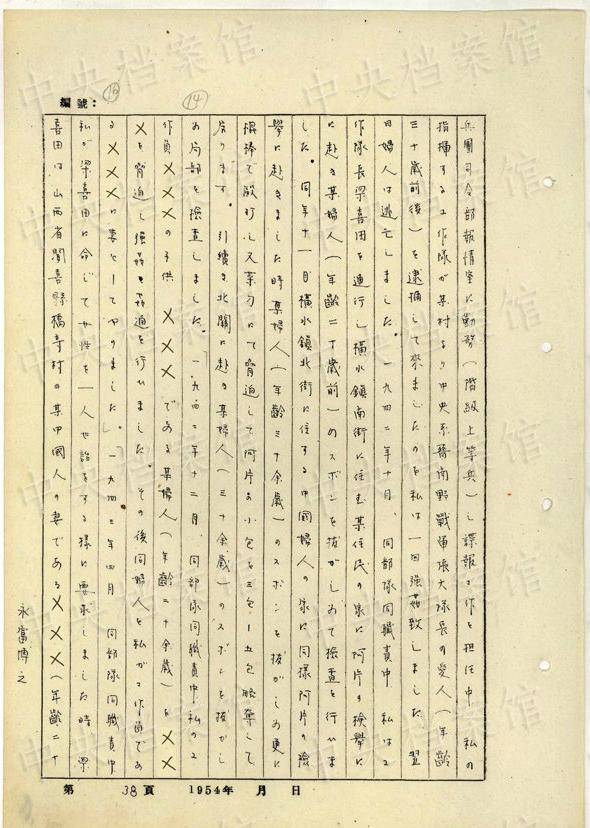 編號:
⑭
兵團司令部報情室に勤務(階級上等兵)し諜報工作を担任中 私の
指揮する工作隊が某村より中央系晉南野戰軍張大隊長の愛人(年齡
三十歲前後)を逮捕して來ましたのを私は一回強姦致しました 翌
日婦人は逃亡しました。一九四二年十月、同部隊同職責中 私は工
作隊長梁喜田を連行し橫水鎭南街に住む某住民の家に阿片の検擧に
に赴き某婦人(年齡二十歲前)のズボンを拔がしめて搜查を行いま
した。同年十一月橫水鎭北街に住する中國婦人の家に同樣阿片の檢
擧に赴きました時某婦人(年齡三十余歲)のズボンを拔がしめ更に
棍棒で毆打し又 にて脅迫して阿片の小包を三包 五包略奪して
居ります。引續き北關に赴き某婦人(三十余歲)のズボンを拔がし
め局部を搜查しました。一九四二年十二月、同部隊同職責中 私の工
作員×××の子供 ×××である某婦人(年齡二十余歲)を××
×を脅迫し強姦を行いました。その後同婦人を私が工作員であ
る×××に妻としてやりました。一九四三年四月 同部隊同職責中
私が梁喜田に命じて女性を一人世話をする樣に要求しました時 梁
喜田は山西省聞喜縣橋寺村の某中國人の妻である×××(年齡二十
永富博之
第 38 頁 1954年 月 日
中央档案馆